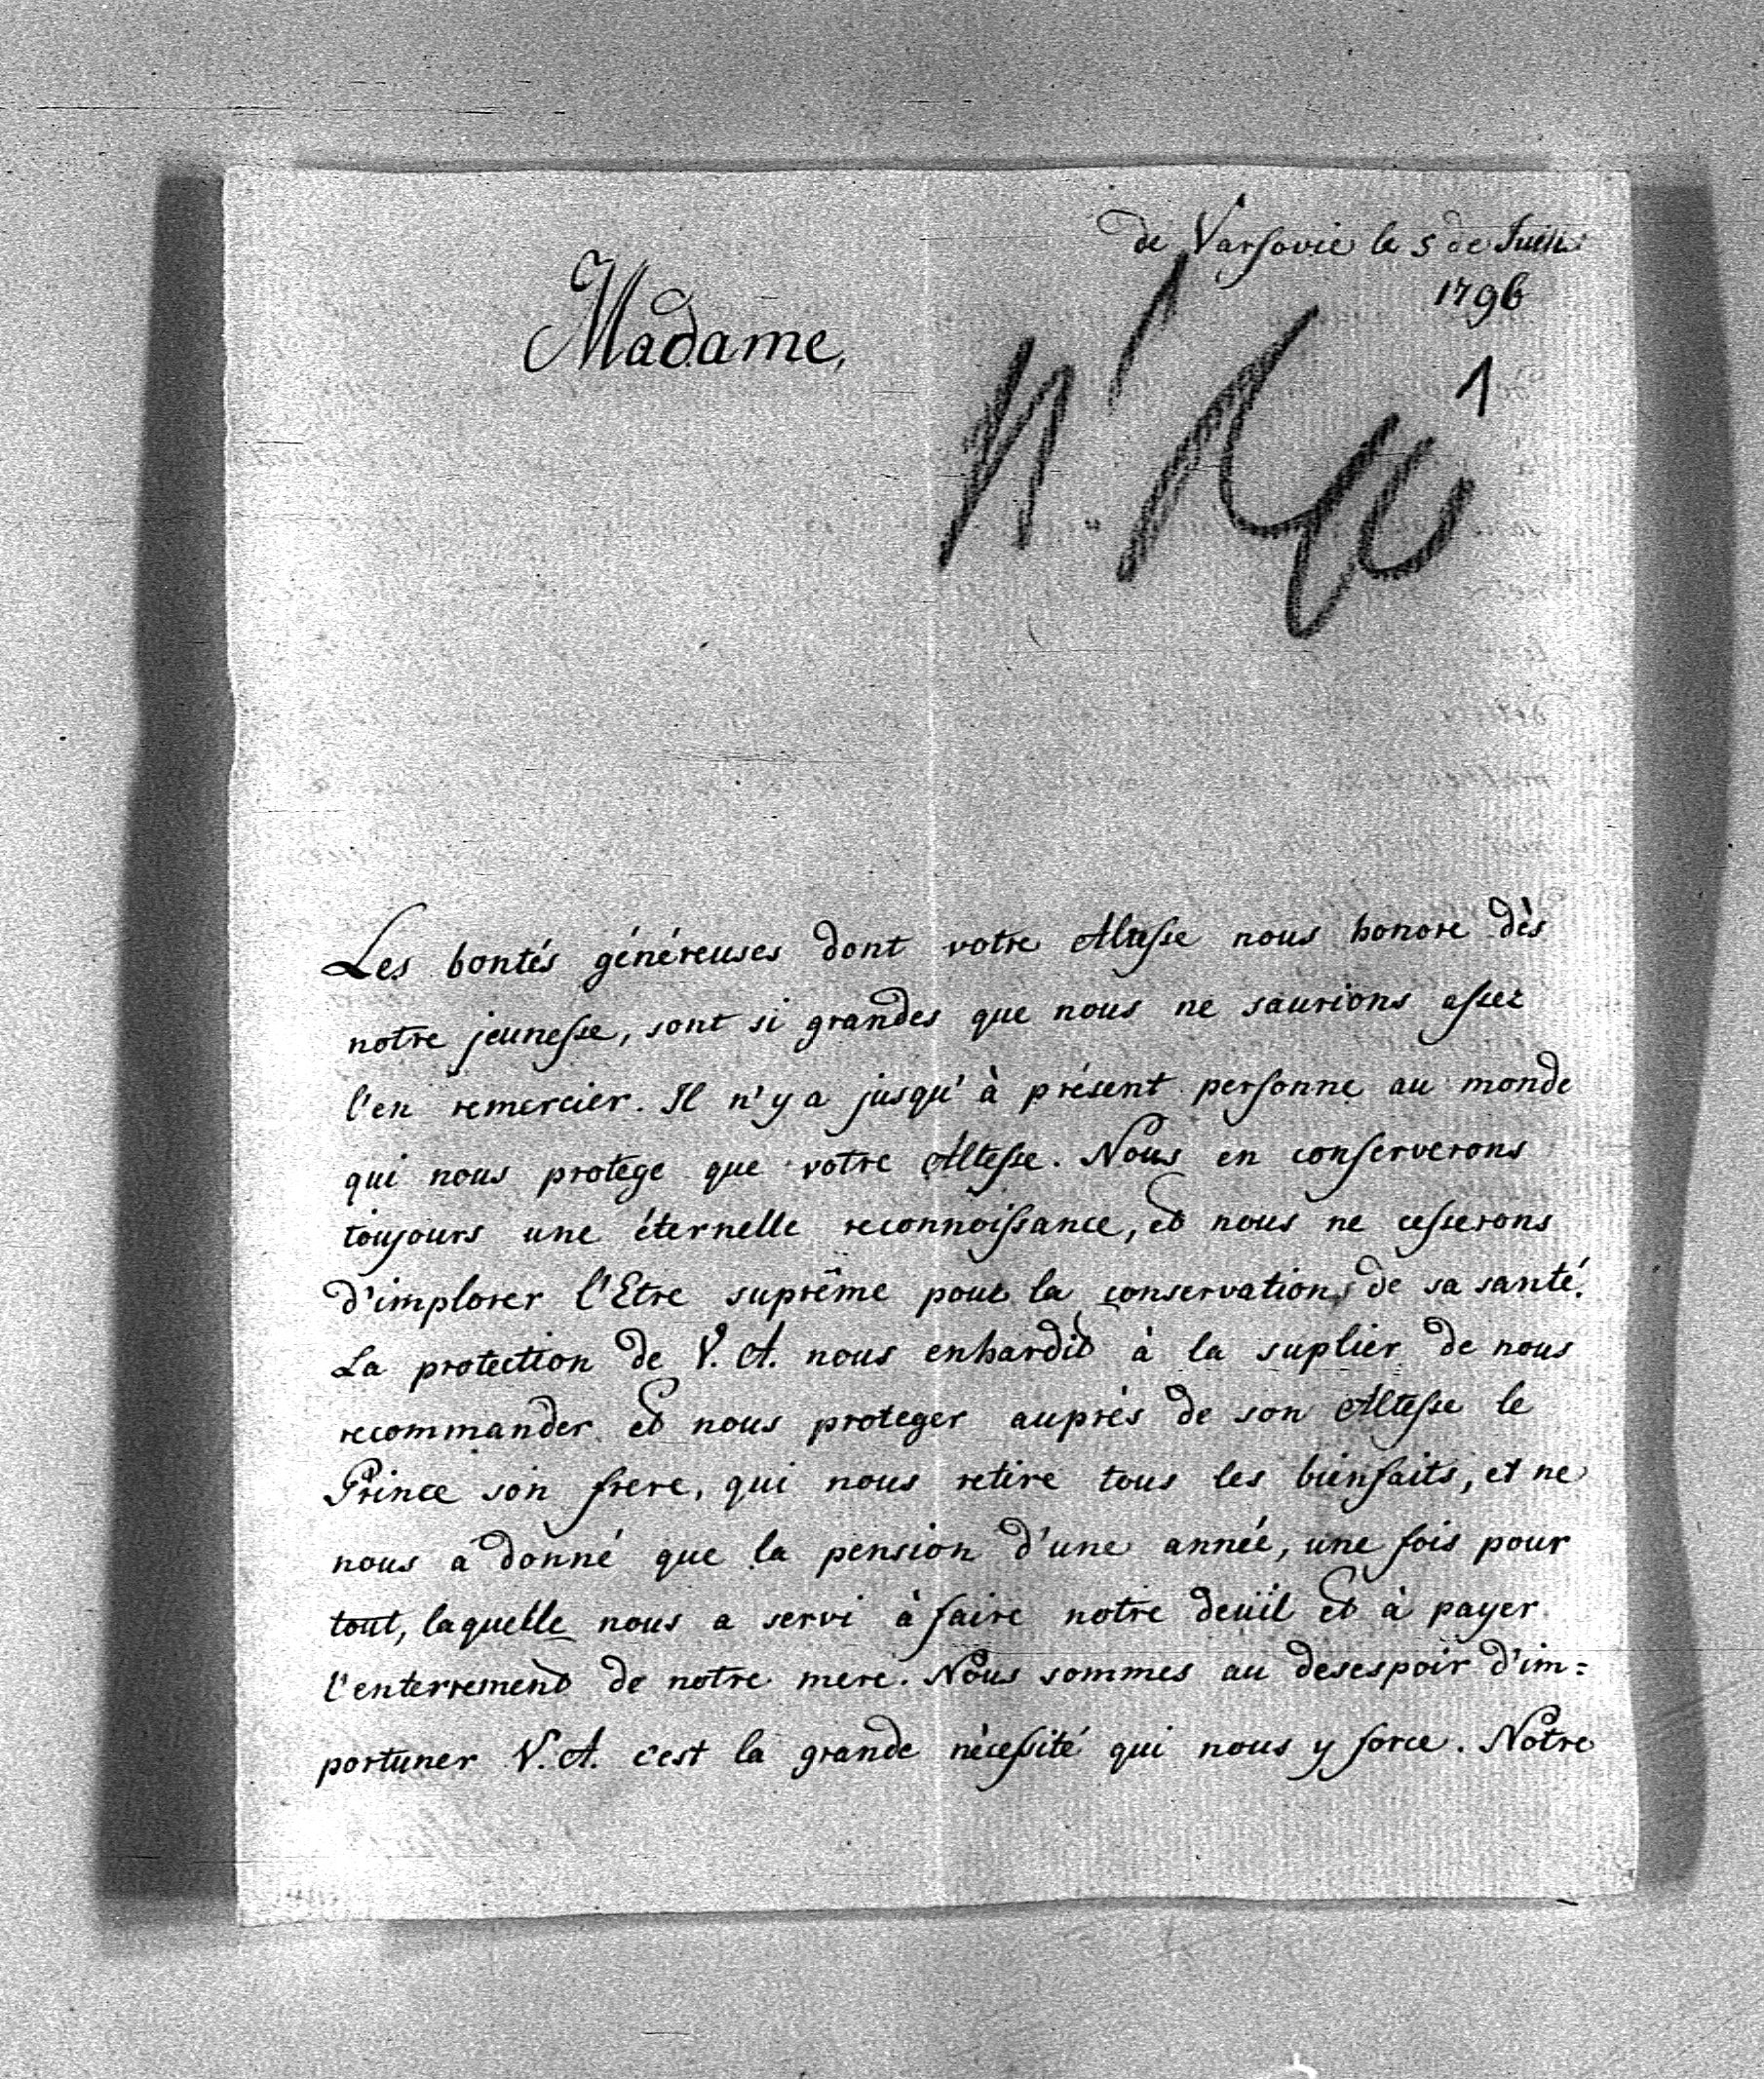 de Varsovie le 5 de Juin
1796
Madame,
1
Les bontés généreuses dont votre Altesse nous honore dès
notre jeunesse, sont si grandes que nous ne saurions assez
l'en remercier. Il n'y a jusqu'à présent personne au monde
qui nous protege que votre Altesse. Nous en conserverons
toujours une éternelle reconnoissance, et nous ne cesserons
d'implorer l'Etre suprême pour la conservation de sa santé.
La protection de V. A. nous enhardit à la suplier de nous
recommander et nous proteger auprès de son Altesse le
Prince son frere, qui nous retire tous les bienfaits, et ne
nous a donné que la pension d'une année, une fois pour
tout, laquelle nous a servi à faire notre deüil et à payer
l'enterrement de notre mere. Nous sommes au desespoir d'im=
portuner V. A. c'est la grande nècessité qui nous y force. Notre